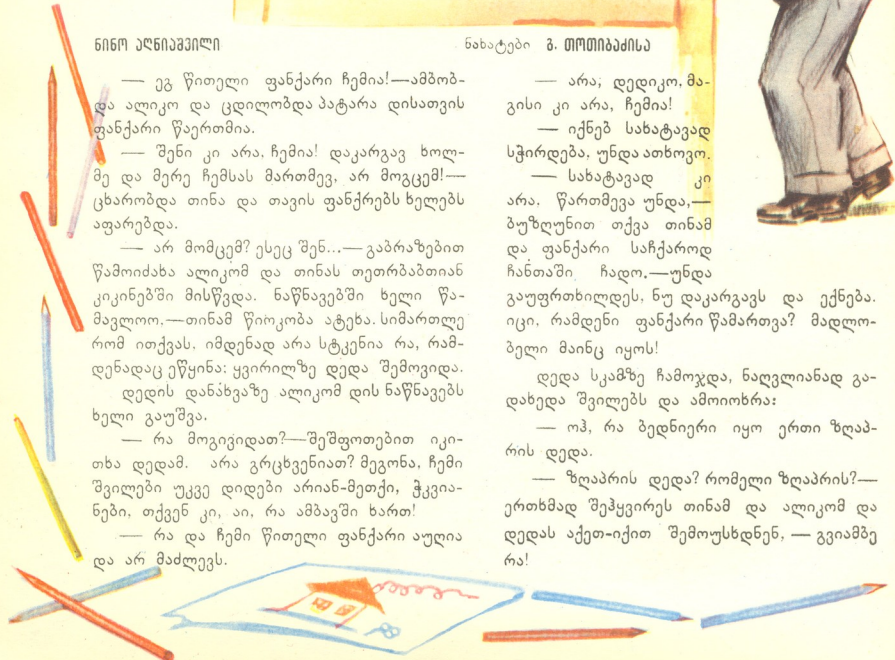 ნინო აღნიაშვილი
ნახატები გ. თოთიბაძისა
— ეგ წითელი ფანქარი ჩემია!—ამბობ-
და ალიკო და ცდილობდა პატარა დისათვის
ფანქარი წაერთმია.
— შენი კი არა, ჩემია! დაკარგავ ხოლ-
მე და მერე ჩემსას მართმევ, არ მოგცემ!—
ცხარობდა თინა და თავის ფანქრებს ხელებს
აფარებდა.
— არ მომცემ? ესეც შენ...— გაბრაზებით
წამოიძახა ალიკომ და თინას თეთრბაბთიან
კიკინებში მისწვდა. ნაწნავებში ხელი წა-
მავლოო,—თინამ წიოკობა ატეხა. სიმართლე
რომ ითქვას, იმდენად არა სტკენია რა, რამ-
დენადაც ეწყინა: ყვირილზე დედა შემოვიდა.
დედის დანახვაზე ალიკომ დის ნაწნავებს
ხელი გაუშვა.
— რა მოგივიდათ?—შეშფოთებით იკი-
თხა დედამ. არა გრცხვენიათ? მეგონა, ჩემი
შვილები უკვე დიდები არიან-მეთქი, ჭკვია-
ნები, თქვენ კი, აი, რა ამბავში ხართ!
— რა და ჩემი წითელი ფანქარი აუღია
და არ მაძლევს.
— არა, დედიკო, მა-
გისი კი არა, ჩემია!
— იქნებ სახატავად
სჭირდება, უნდა ათხოვო.
— სახატავად კი
არა, წართმევა უნდა,—
ბუზღუნით თქვა თინამ
და ფანქარი საჩქაროდ
ჩანთაში ჩადო.—უნდა
გაუფრთხილდეს, ნუ დაკარგავს და ექნება.
იცი, რამდენი ფანქარი წამართვა? მადლო-
ბელი მაინც იყოს!
დედა სკამზე ჩამოჯდა, ნაღვლიანად გა-
დახედა შვილებს და ამოიოხრა:
— ოჰ, რა ბედნიერი იყო ერთი ზღაპ-
რის დედა.
— ზღაპრის დედა? რომელი ზღაპრის?—
ერთხმად შეჰყვირეს თინამ და ალიკომ და
დედას აქეთ-იქით შემოუსხდნენ, — გვიამბე
რა!